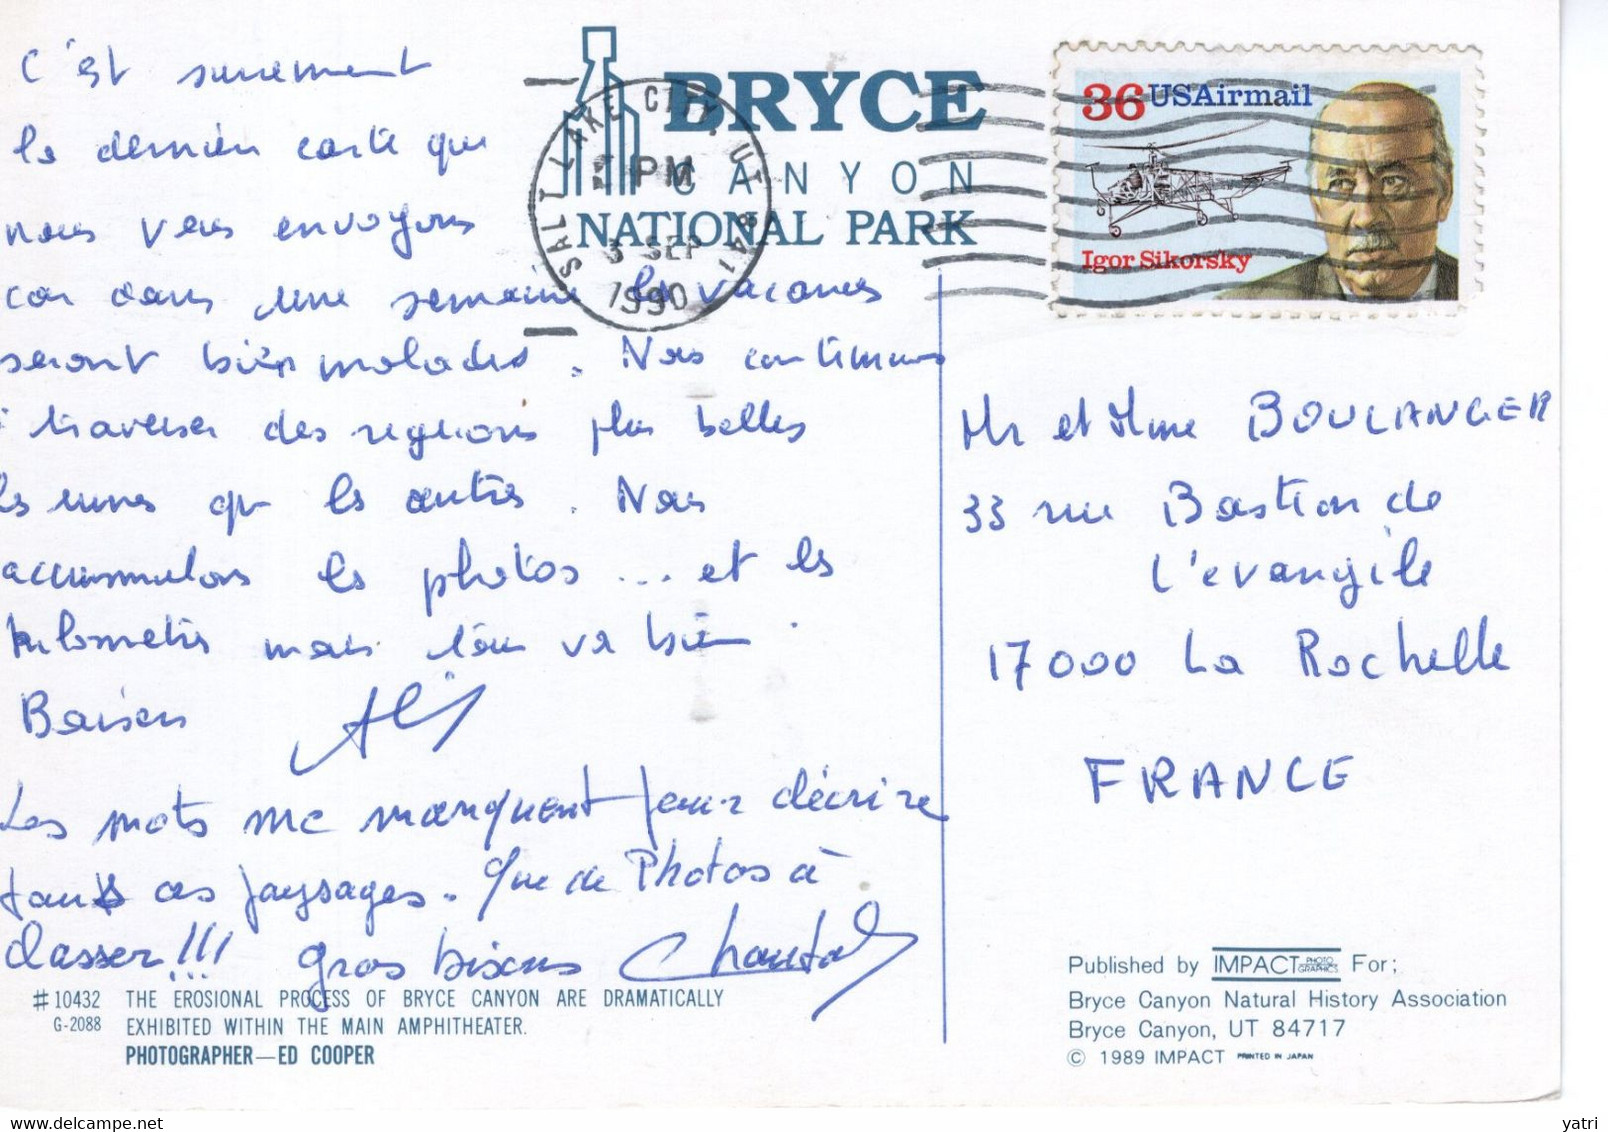 C'est surement
la dernière carte que
nous vous envoyons
car dans une semaine les vacances
seront bien malades. Nous continuons
à traverser des régions plus belles
les unes que les autres. Nous
accumulons les photos ... et les
kilomètres mais tout va bien.
Baisers
Les mots me manquent pour décrire
tous ces paysages. Que de Photos à
classer!!! Gros bisous Chantal
#10432 THE EROSIONAL PROCESS OF BRYCE CANYON ARE DRAMATICALLY
G-2088 EXHIBITED WITHIN THE MAIN AMPHITHEATER.
PHOTOGRAPHER—ED COOPER
BRYCE
CANYON
NATIONAL PARK
SALT LAKE CITY, UT 841
PM
3 SEP
1990
36 USAirmail
Igor Sikorsky
Mr et Mme BOULANGER
33 rue Bastion de
l'evangile
17000 La Rochelle
FRANCE
Published by IMPACT PHOTO GRAPHICS For;
Bryce Canyon Natural History Association
Bryce Canyon, UT 84717
© 1989 IMPACT PRINTED IN JAPAN